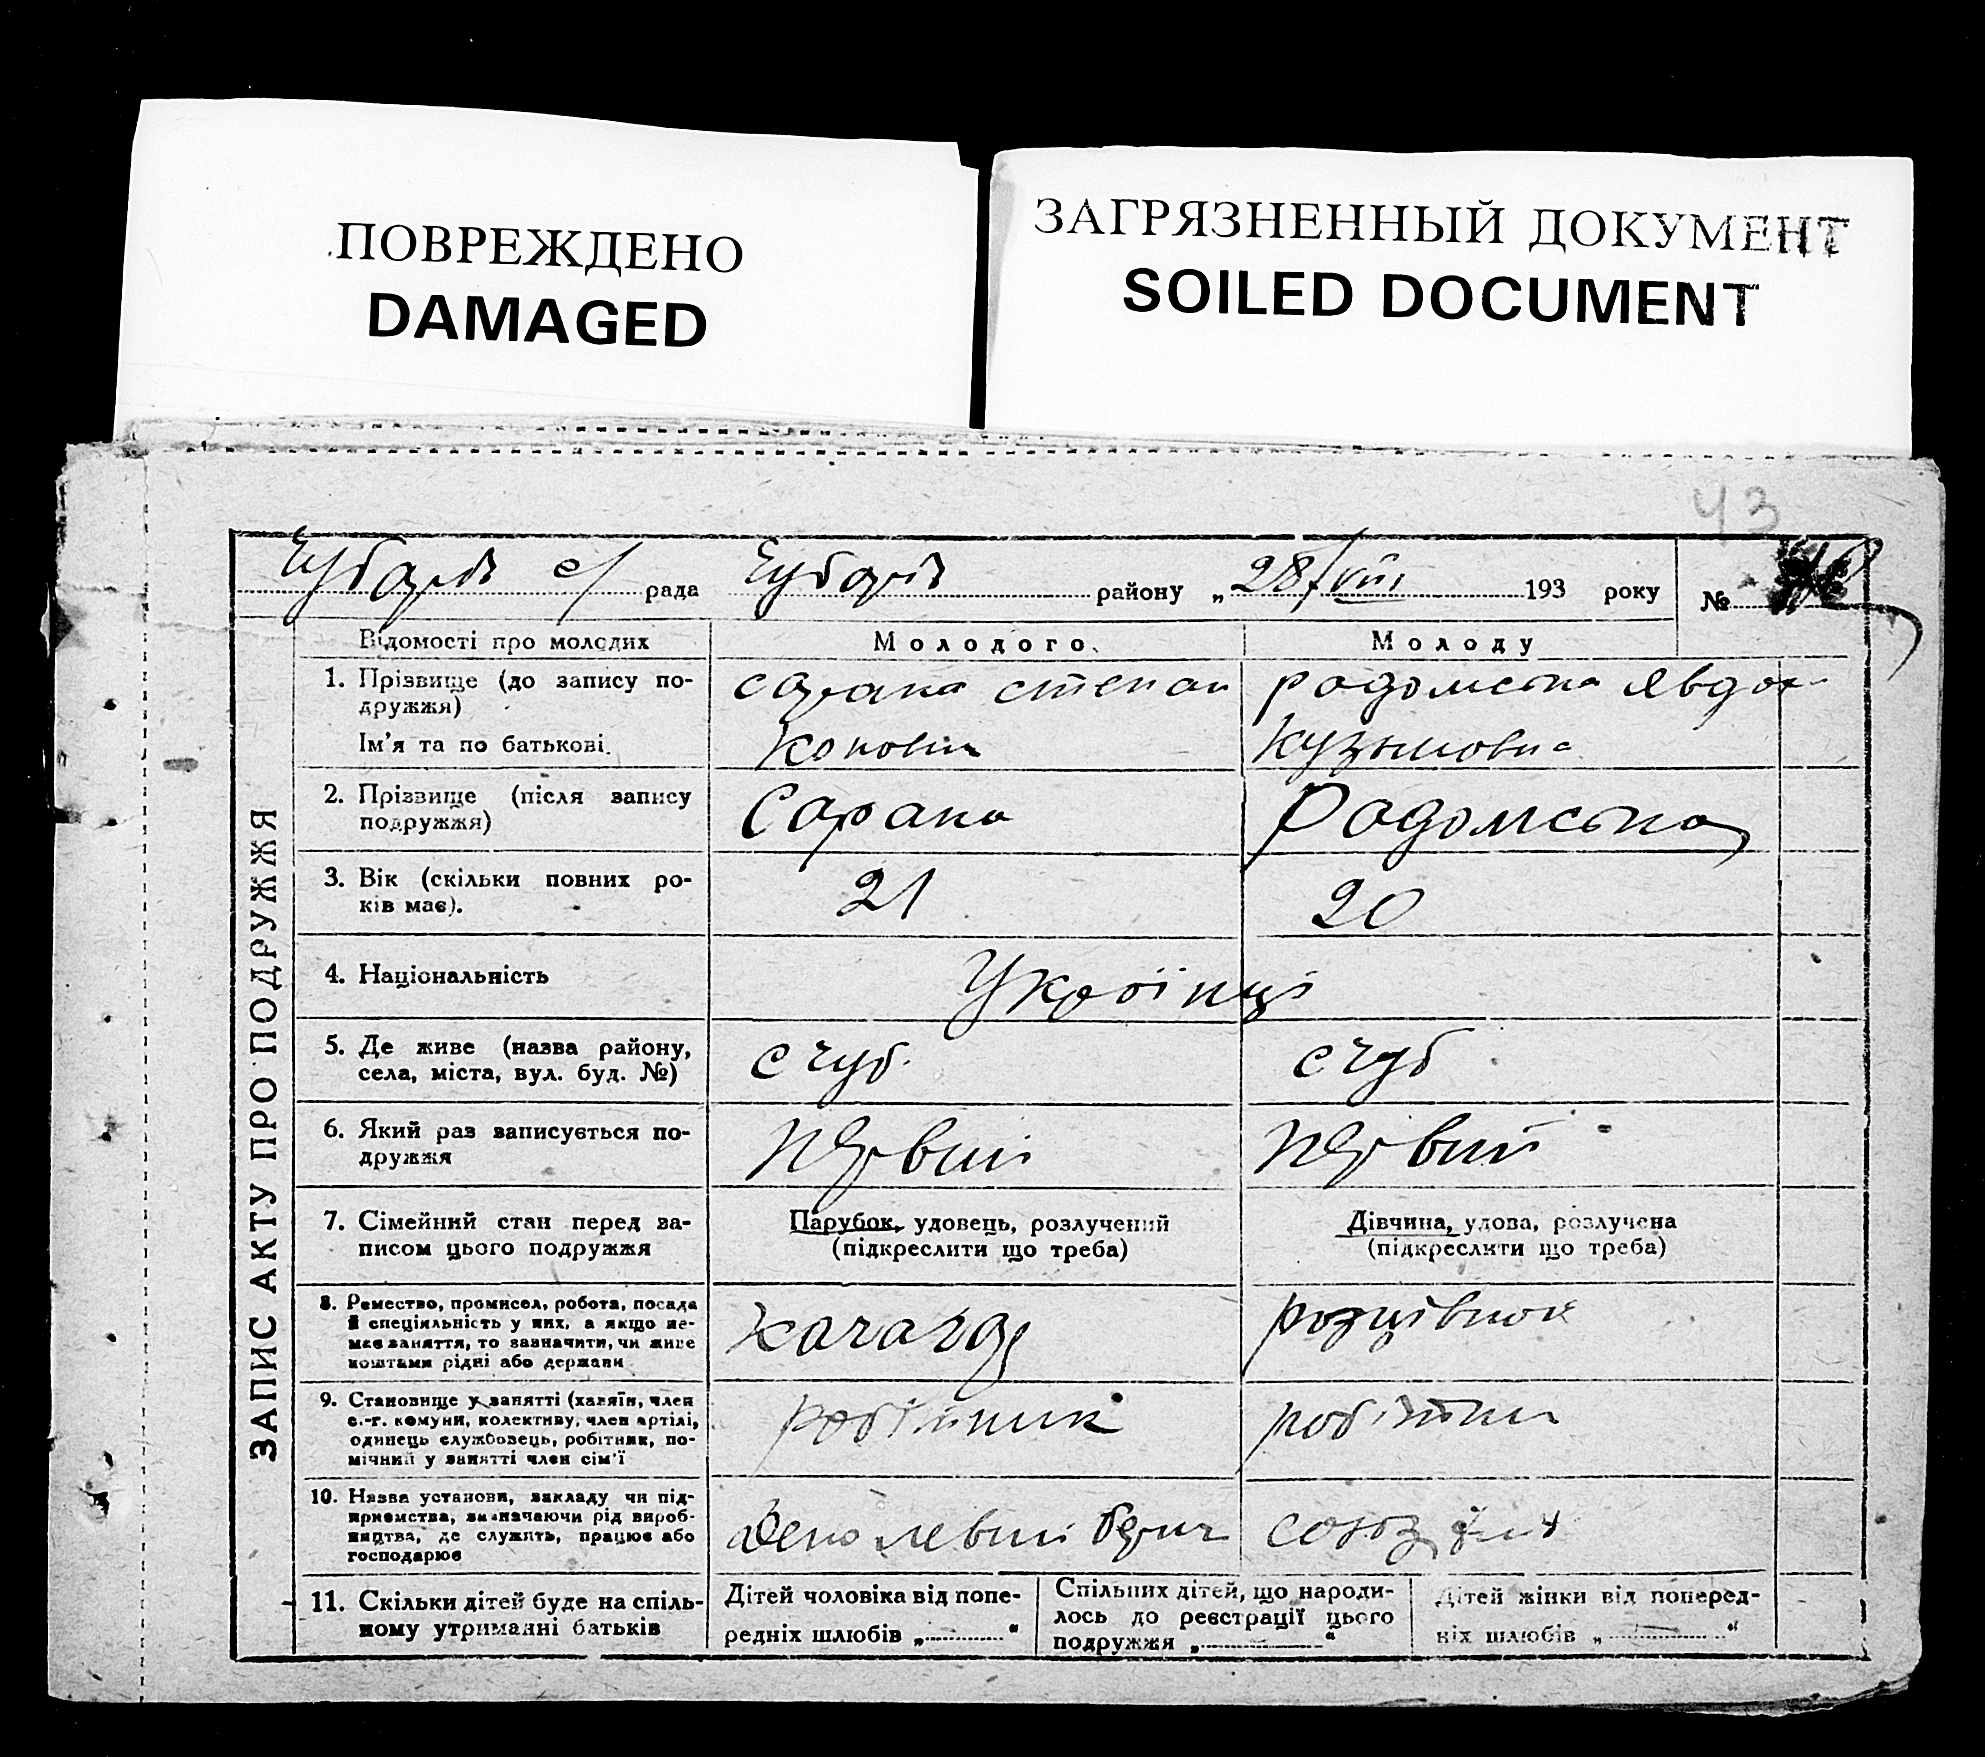 ПОВРЕЖДЕНО
DAMAGED
ЗАГРЯЗНЕННЫЙ ДОКУМЕНТ
SOILED DOCUMENT
43
с/ рада району „28/VIII 193 року №
ЗАПИС АКТУ ПРО ПОДРУЖЖЯ
Відомості про молодих
Молодого.
Молоду
1. Прізвище (до запису по-
дружжя)
Ім'я та по батькові.
Сарана Степан
Радомська Явдо
Кузьмовна
2. Прізвище (після запису
подружжя)
Сарана
Радомська
3. Вік (скільки повних ро-
ків має).
21
20
4. Національність
Українці
5. Де живе (назва району,
села, міста, вул. буд. №)
с чуб.
с чуб
6. Який раз записується по-
дружжя
Первий
Первий
7. Сімейний стан перед за-
писом цього подружжя
Парубок, удовець, розлучений
(підкреслити що треба)
Дівчина, удова, розлучена
(підкреслити що треба)
8. Ремество, промисел, робота, посада
й спеціяльність у них, а якщо не-
має заняття, то зазначити, чи живе
коштами рідні або держави
Качагар
9. Становище у занятті (хазяїн, член
с.-г. комуни, колективу, член артілі,
одинець службовець, робітник, по-
мічний у занятті член сім'ї
робітник
10. Назва установи, закладу чи під-
приємства, визначаючи рід вироб-
ництва, де служить, працює або
господарює
Депо левий берег
11. Скільки дітей буде на спіль-
ному утриманні батьків
Дітей чоловіка від попе-
редніх шлюбів „ “
Спільних дітей, що народи-
лось до реєстрації цього
подружжя „ “
Дітей жінки від поперед-
ніх шлюбів „ “